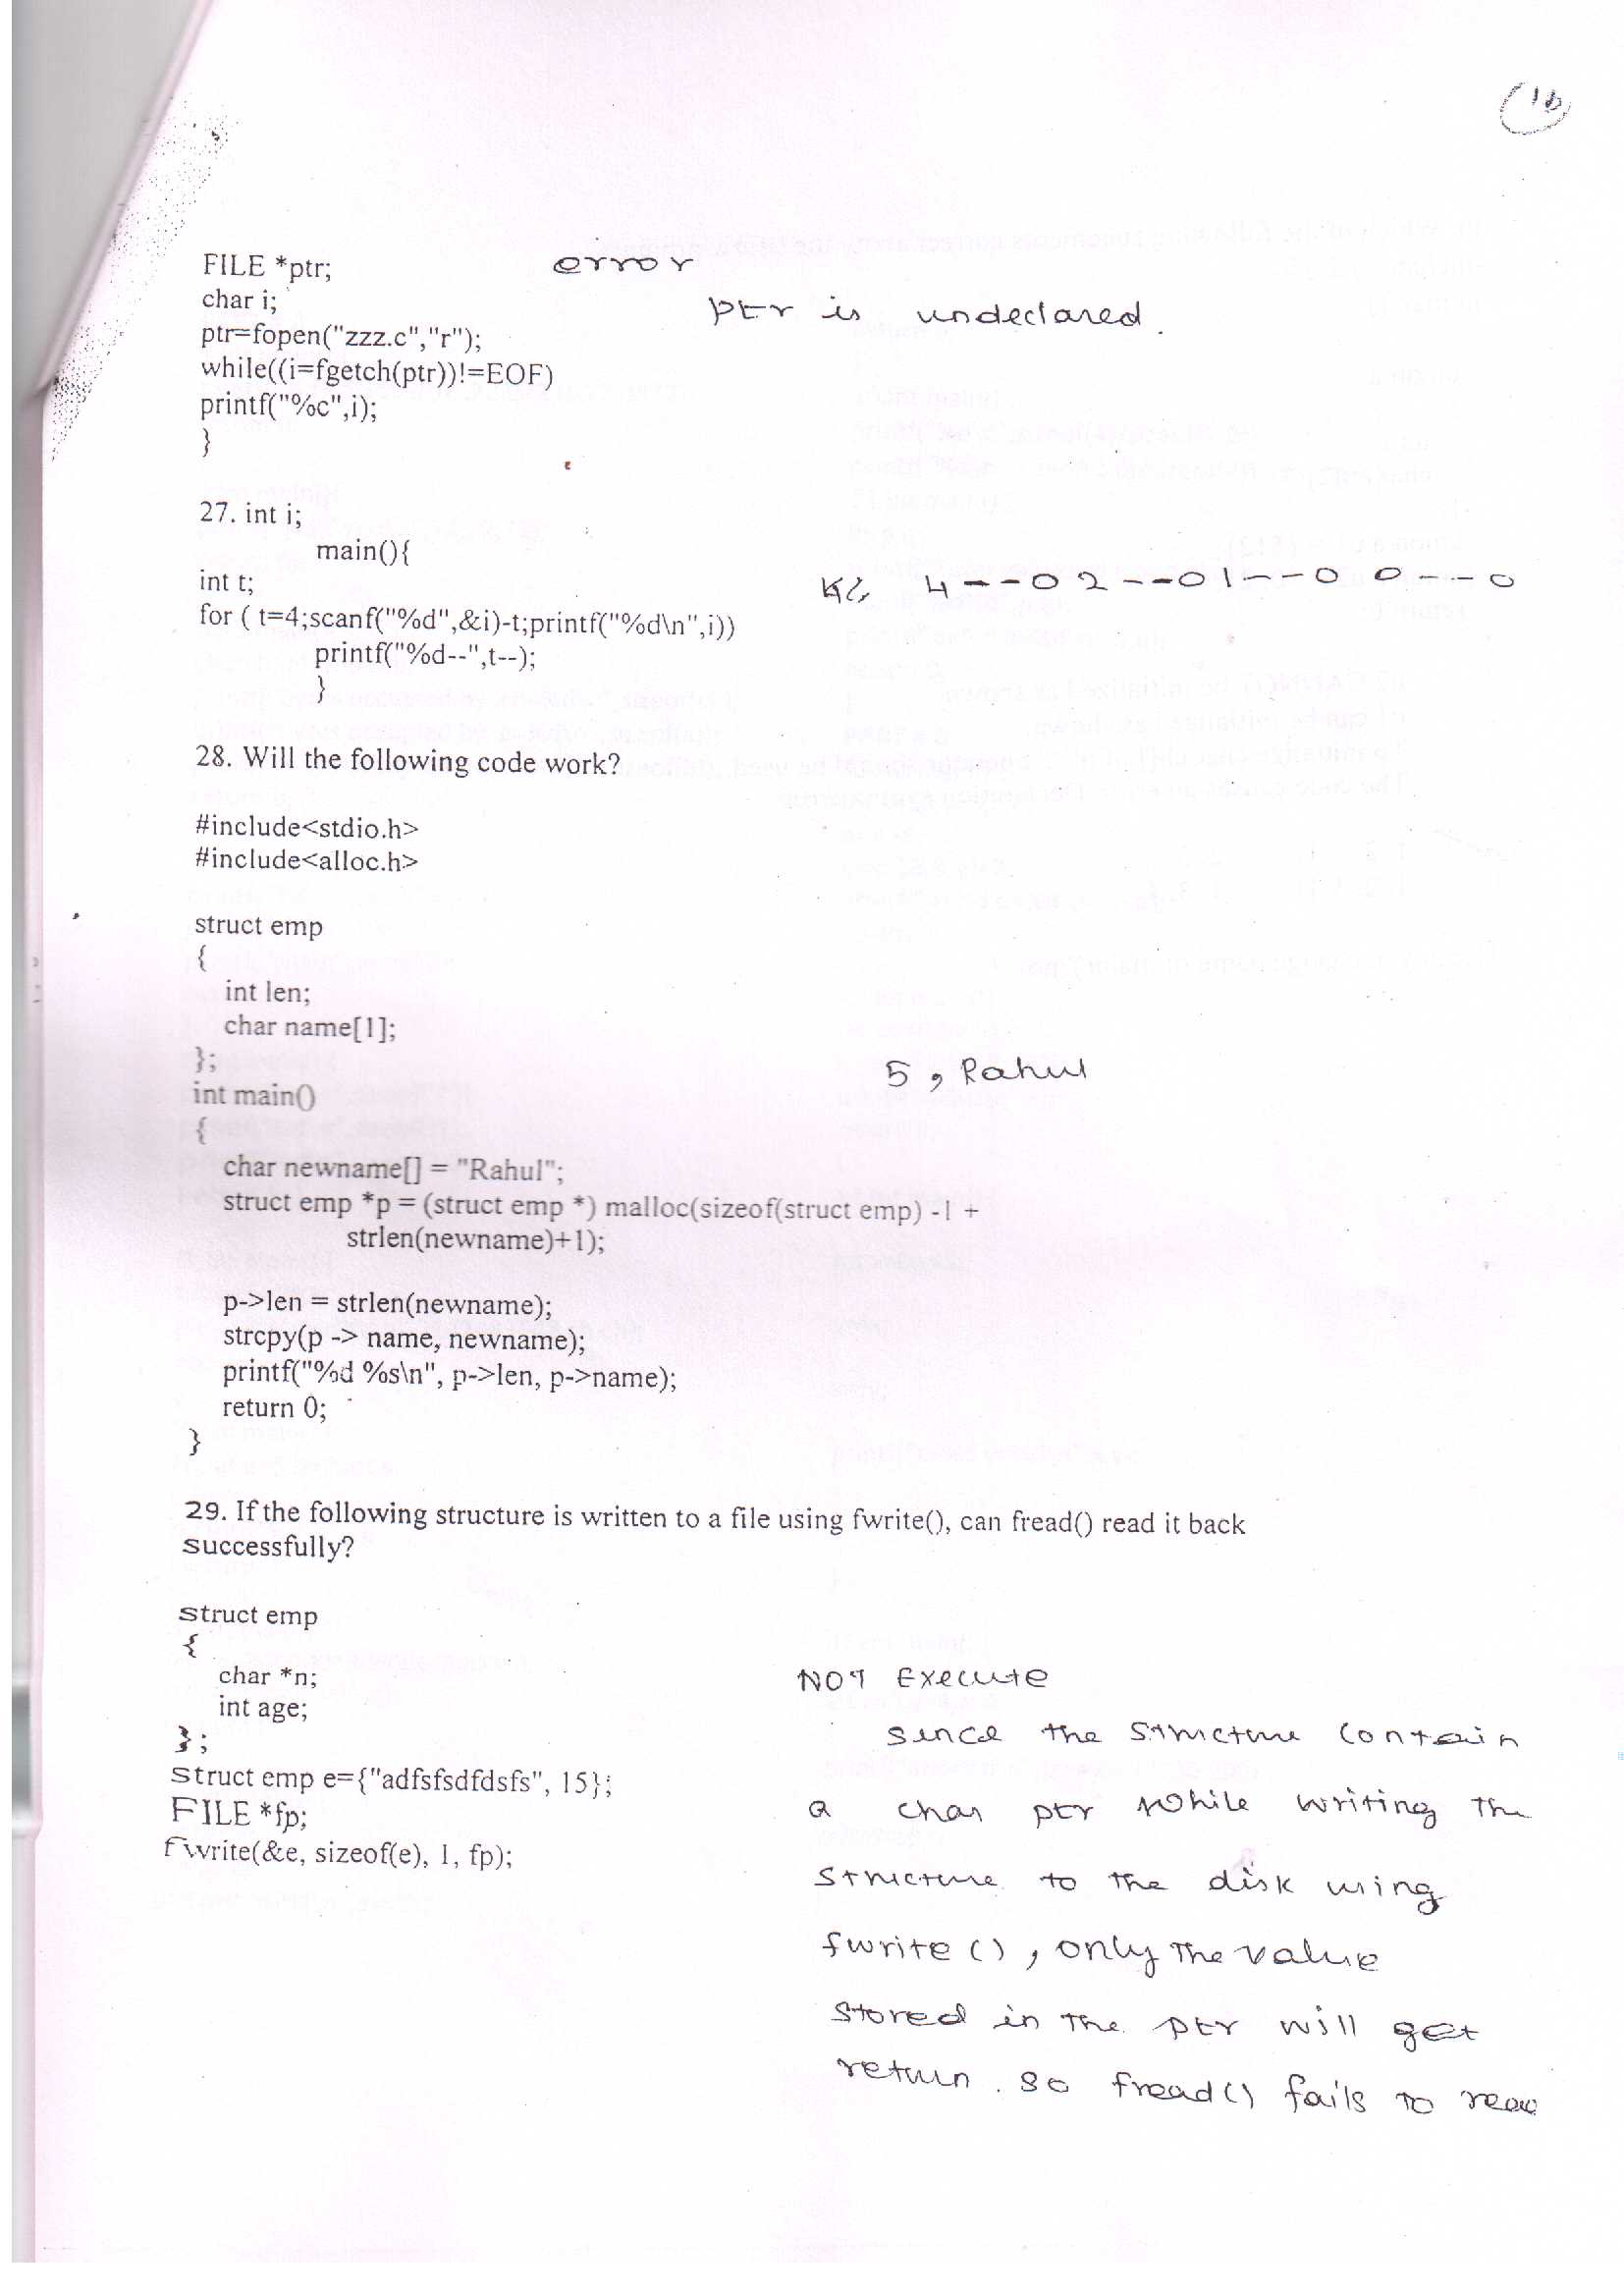 (16)
FILE *ptr; error
char i; ptr is undeclared.
ptr=fopen("zzz.c","r");
while((i=fgetch(ptr))!=EOF)
printf("%c",i);
}
27. int i;
main(){
int t; 4--02--01--0 0---0
for ( t=4;scanf("%d",&i)-t;printf("%d\n",i))
printf("%d--",t--);
}
28. Will the following code work?
#include<stdio.h>
#include<alloc.h>
struct emp
{
int len;
char name[1];
};
5, Rahul
int main()
{
char newname[] = "Rahul";
struct emp *p = (struct emp *) malloc(sizeof(struct emp) -1 +
strlen(newname)+1);
p->len = strlen(newname);
strcpy(p -> name, newname);
printf("%d %s\n", p->len, p->name);
return 0;
}
29. If the following structure is written to a file using fwrite(), can fread() read it back
successfully?
struct emp
{
char *n;
int age;
};
struct emp e={"adfsfsdfdsfs", 15};
FILE *fp;
fwrite(&e, sizeof(e), 1, fp);
NOT Execute
since the structure contain
a char ptr while writing the
structure to the disk using
fwrite(), only the value
stored in the ptr will get
return. so fread() fails to read